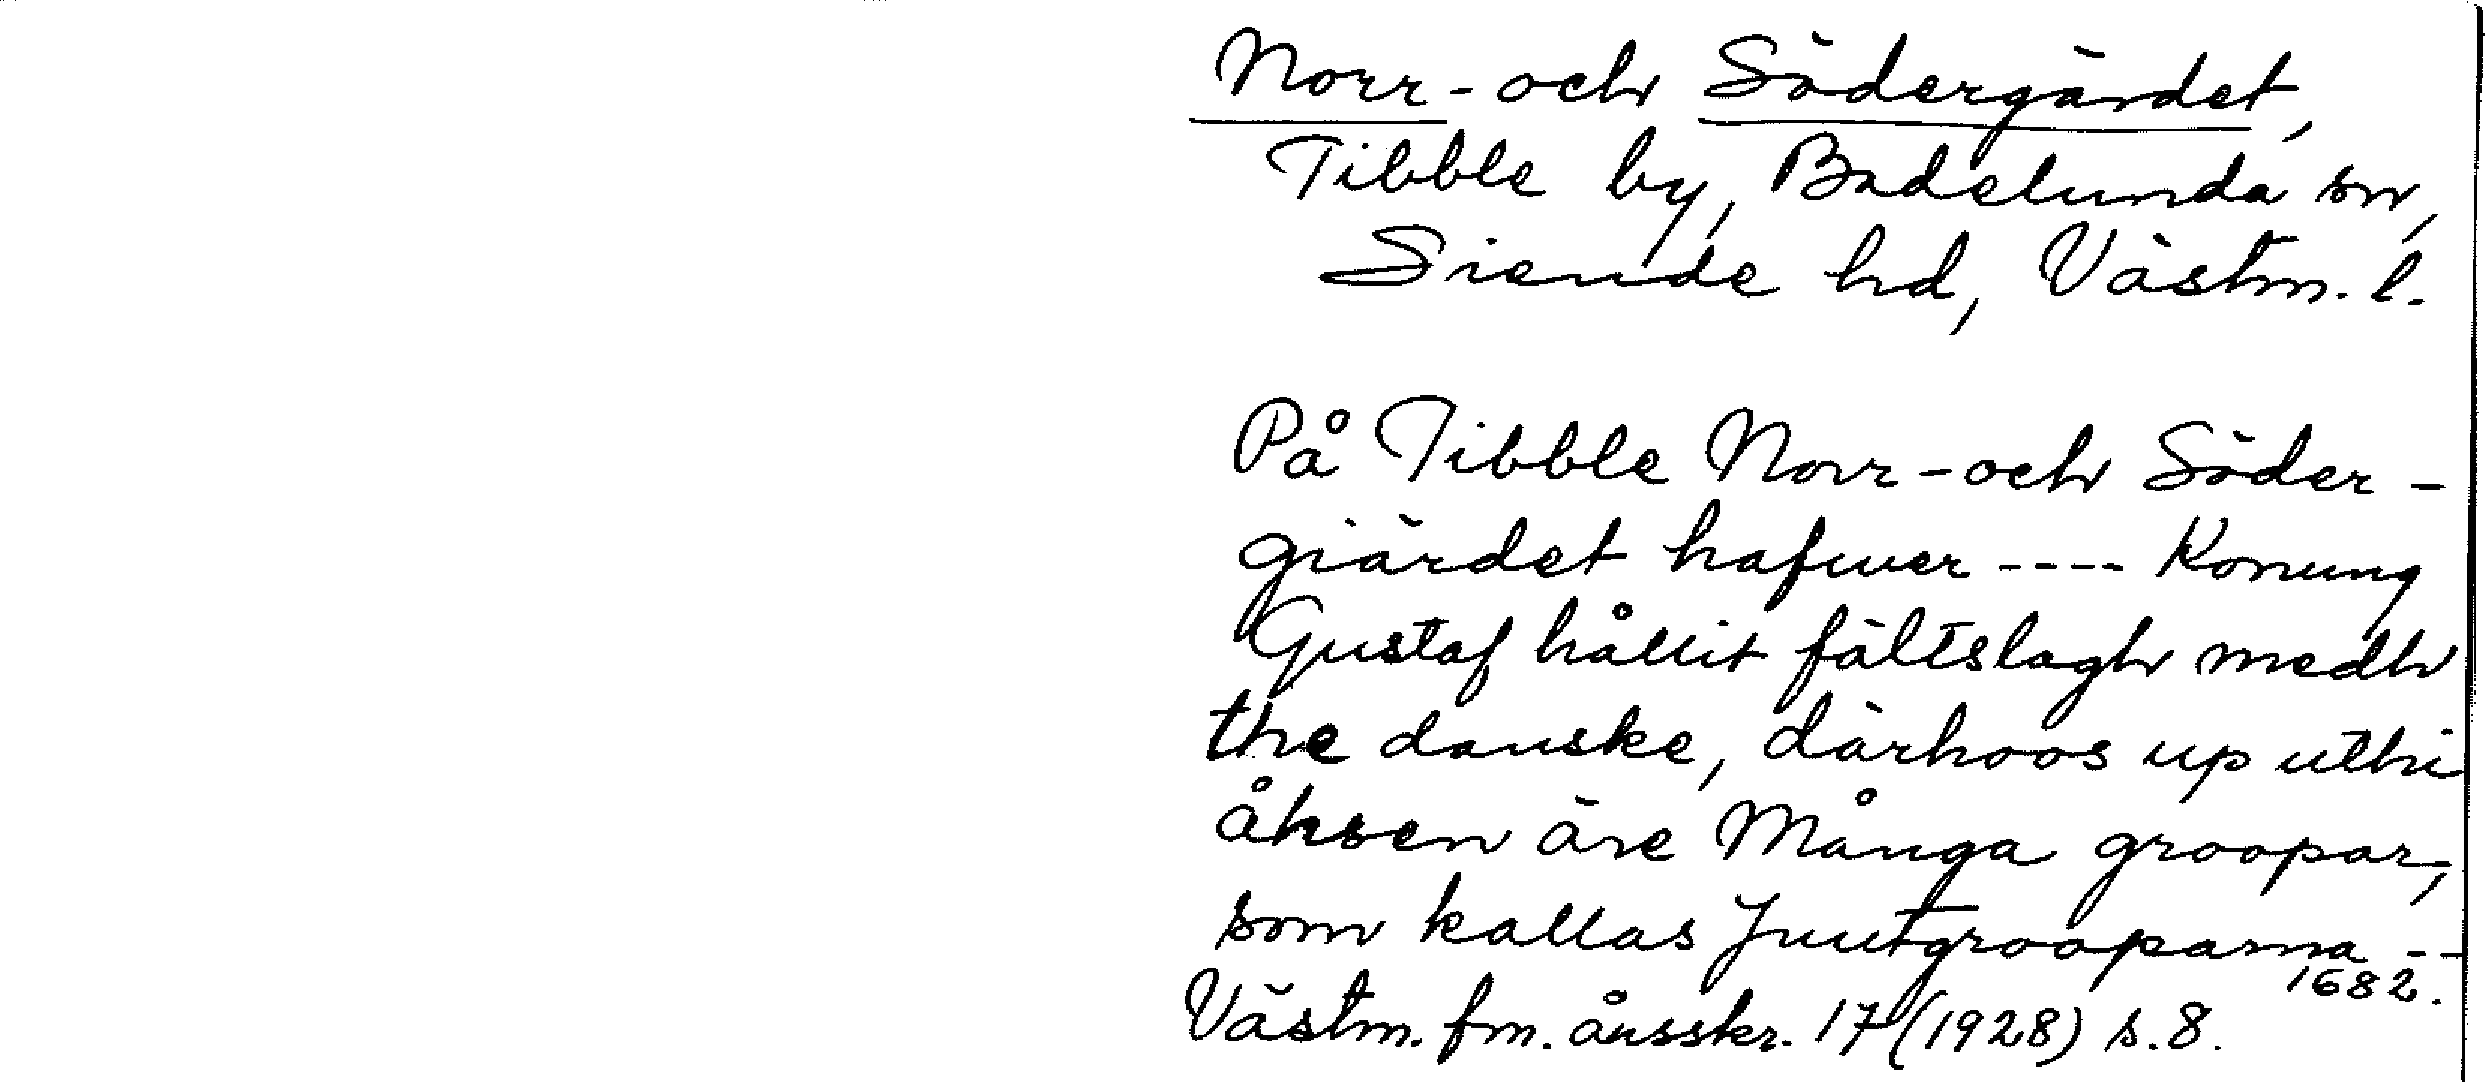 Norr- och Södergärdet,
Tibble by, Badelunda sn,
Siende hd, Västm. l.
På Tibble Norr- och Söder-
giärdet hafwer ---- Konung
Gustaf hållit fältslagh medh
the danske, därhoos up uthi
åhsen äre Många groopar,
som kallas Juutgrooparna --
1682.
Västm. fm. årsskr. 17 (1928) s. 8.